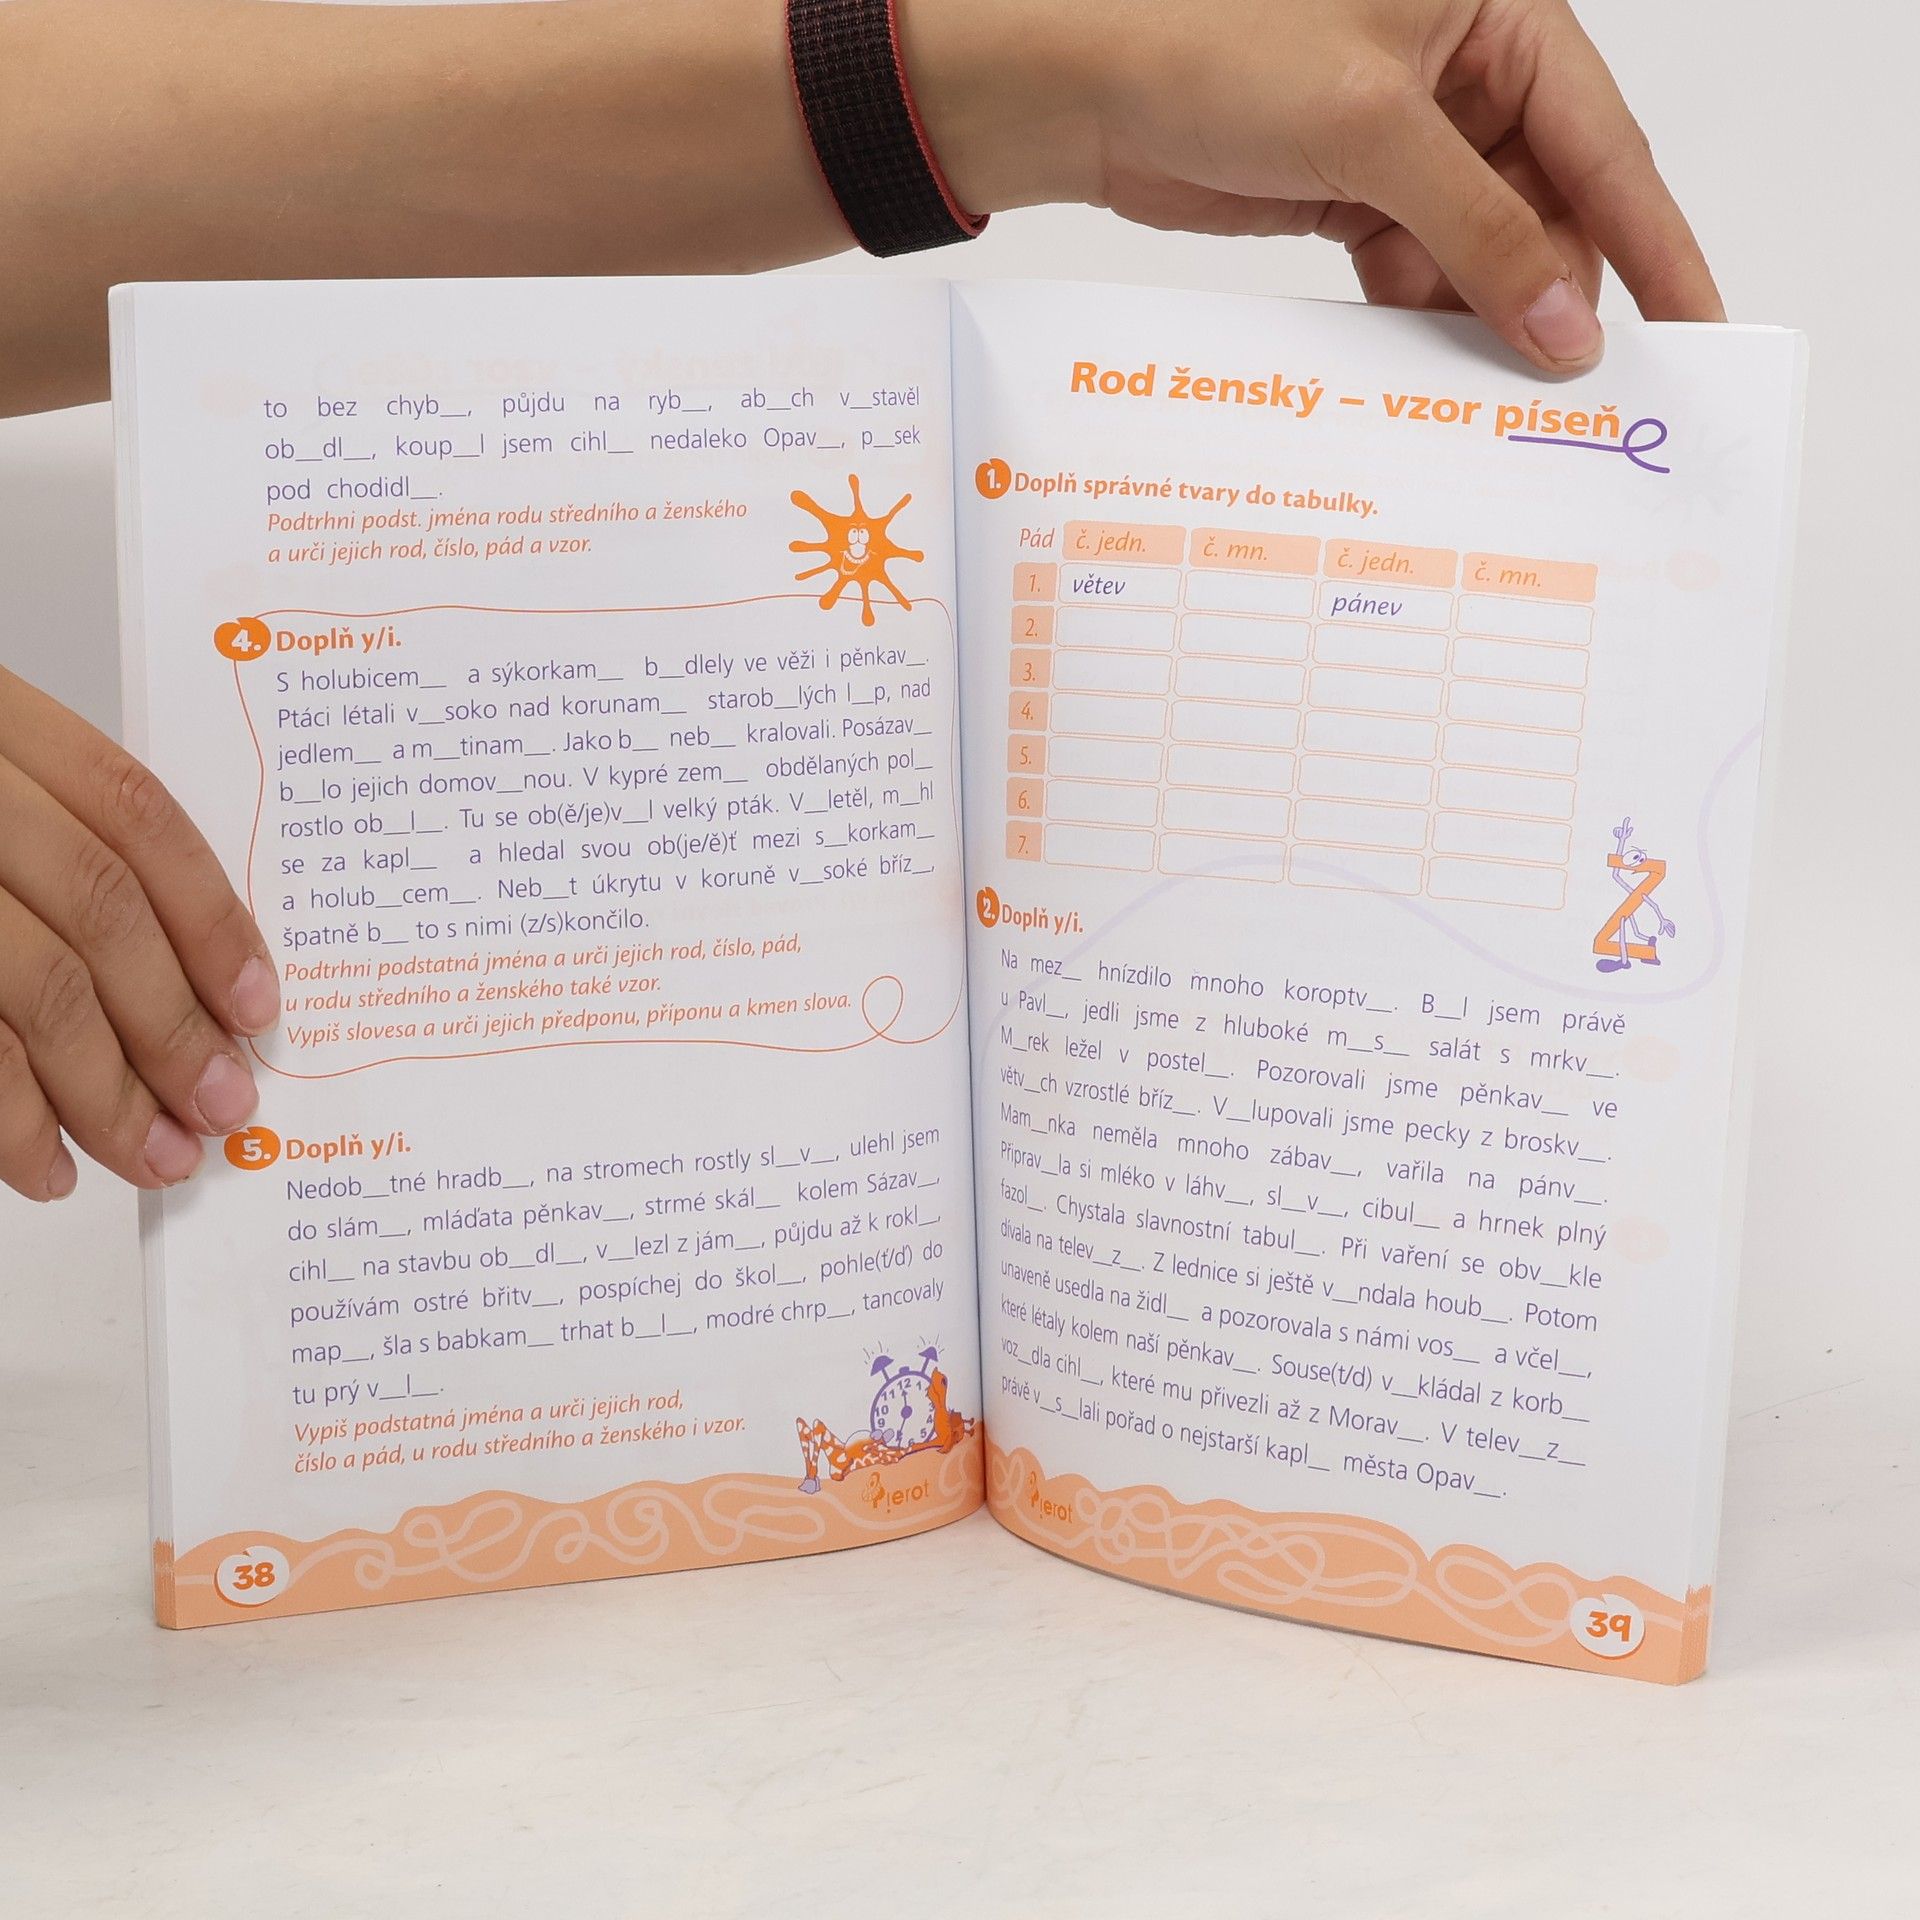 to bez chyb__, půjdu na ryb__, ab__ch v__stavěl
ob__dl__, koup__l jsem cihl__ nedaleko Opav__, p__sek
pod chodidl__.
Podtrhni podst. jména rodu středního a ženského
a urči jejich rod, číslo, pád a vzor.
4. Doplň y/i.
S holubicem__ a sýkorkam__ b__dlely ve věži i pěnkav__.
Ptáci létali v__soko nad korunam__ starob__lých l__p, nad
jedlem__ a m__tinam__. Jako b__ neb__ kralovali. Posázav__
b__lo jejich domov__nou. V kypré zem__ obdělaných pol__
rostlo ob__l__. Tu se ob(ě/je)v__l velký pták. V__letěl, m__hl
se za kapl__ a hledal svou ob(je/ě)ť mezi s__korkam__
a holub__cem__. Neb__t úkrytu v koruně v__soké bříz__,
špatně b__ to s nimi (z/s)končilo.
Podtrhni podstatná jména a urči jejich rod, číslo, pád,
u rodu středního a ženského také vzor.
Vypiš slovesa a urči jejich předponu, příponu a kmen slova.
5. Doplň y/i.
Nedob__tné hradb__, na stromech rostly sl__v__, ulehl jsem
do slám__, mláďata pěnkav__, strmé skál__ kolem Sázav__,
cihl__ na stavbu ob__dl__, v__lezl z jám__, půjdu až k rokl__,
používám ostré břitv__, pospíchej do škol__, pohle(ť/ď) do
map__, šla s babkam__ trhat b__l__, modré chrp__, tancovaly
tu prý v__l__.
Vypiš podstatná jména a urči jejich rod,
číslo a pád, u rodu středního a ženského i vzor.
Pierot
38
Rod ženský – vzor píseň
1. Doplň správné tvary do tabulky.
Pád č. jedn. č. mn. č. jedn. č. mn.
1. větev pánev
2.
3.
4.
5.
6.
7.
2. Doplň y/i.
Na mez__ hnízdilo mnoho koroptv__. B__l jsem právě
u Pavl__, jedli jsme z hluboké m__s__ salát s mrkv__.
M__rek ležel v postel__. Pozorovali jsme pěnkav__ ve
větv__ch vzrostlé bříz__. V__lupovali jsme pecky z broskv__.
Mam__nka neměla mnoho zábav__, vařila na pánv__.
Připrav__la si mléko v láhv__, sl__v__, cibul__ a hrnek plný
fazol__. Chystala slavnostní tabul__. Při vaření se obv__kle
dívala na telev__z__. Z lednice si ještě v__ndala houb__. Potom
unaveně usedla na židl__ a pozorovala s námi vos__ a včel__,
které létaly kolem naší pěnkav__. Souse(t/d) v__kládal z korb__
voz__dla cihl__, které mu přivezli až z Morav__. V telev__z__
právě v__s__lali pořad o nejstarší kapl__ města Opav__.
Pierot
39